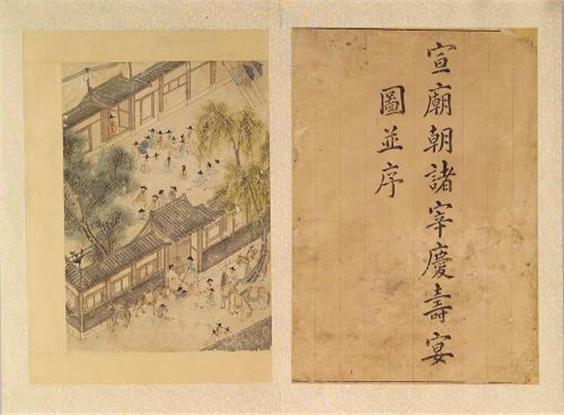 宣廟朝諸宰慶壽宴
圖並序